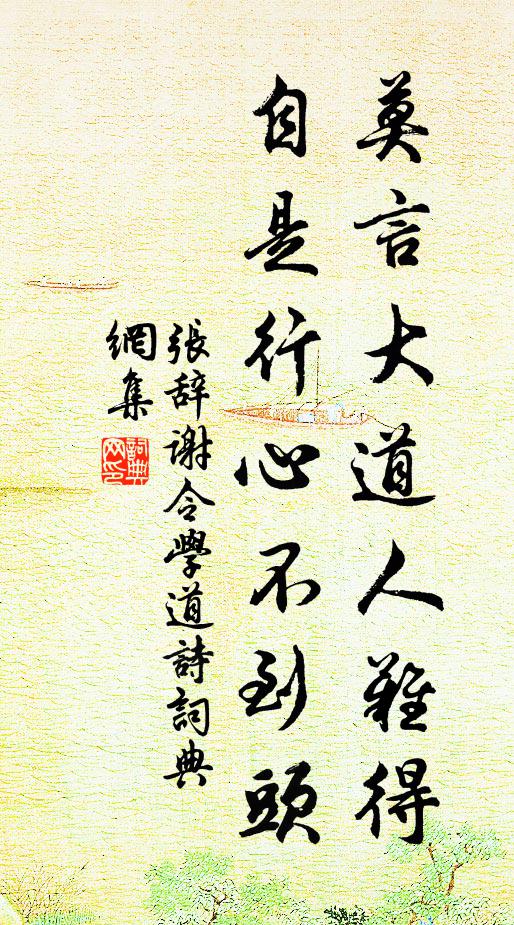 莫言大道人難得
自是行心不到頭
張辭謝令學道詩詞典
網集
詞典
网印